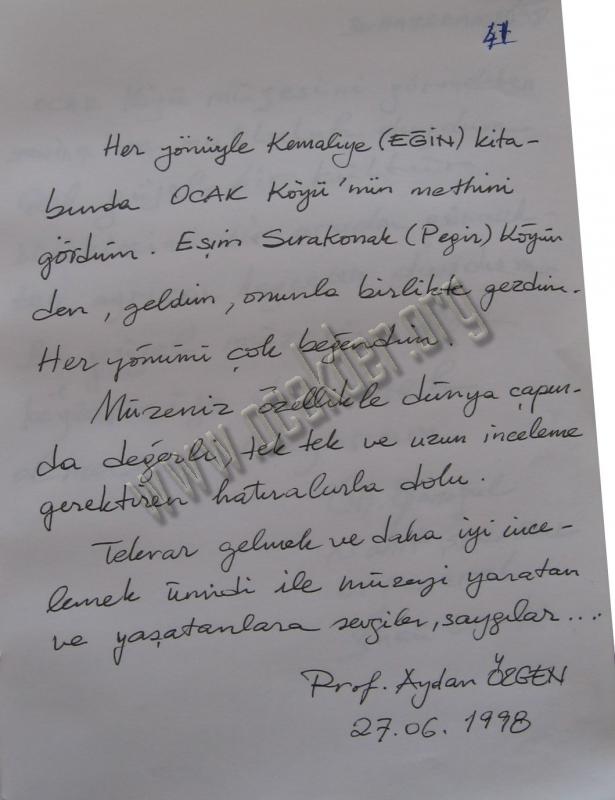 47
Her yönüyle Kemaliye (EĞİN) kita-
bında OCAK Köyü'nün methini
gördüm. Eşim Sırakonak (Pegir) Köyün
den, geldim, onunla birlikte gezdim.
Her yönünü çok beğendim.
Müzeniz özellikle dünya çapın-
da değerli, tek tek ve uzun inceleme
gerektiren hatıralarla dolu.
Tekrar gelmek ve daha iyi ince-
lemek ümidi ile müzeyi yaratan
ve yaşatanlara sevgiler, saygılar....
Prof. Aydan ÖZGEN
27.06.1998
www.ocakder.org